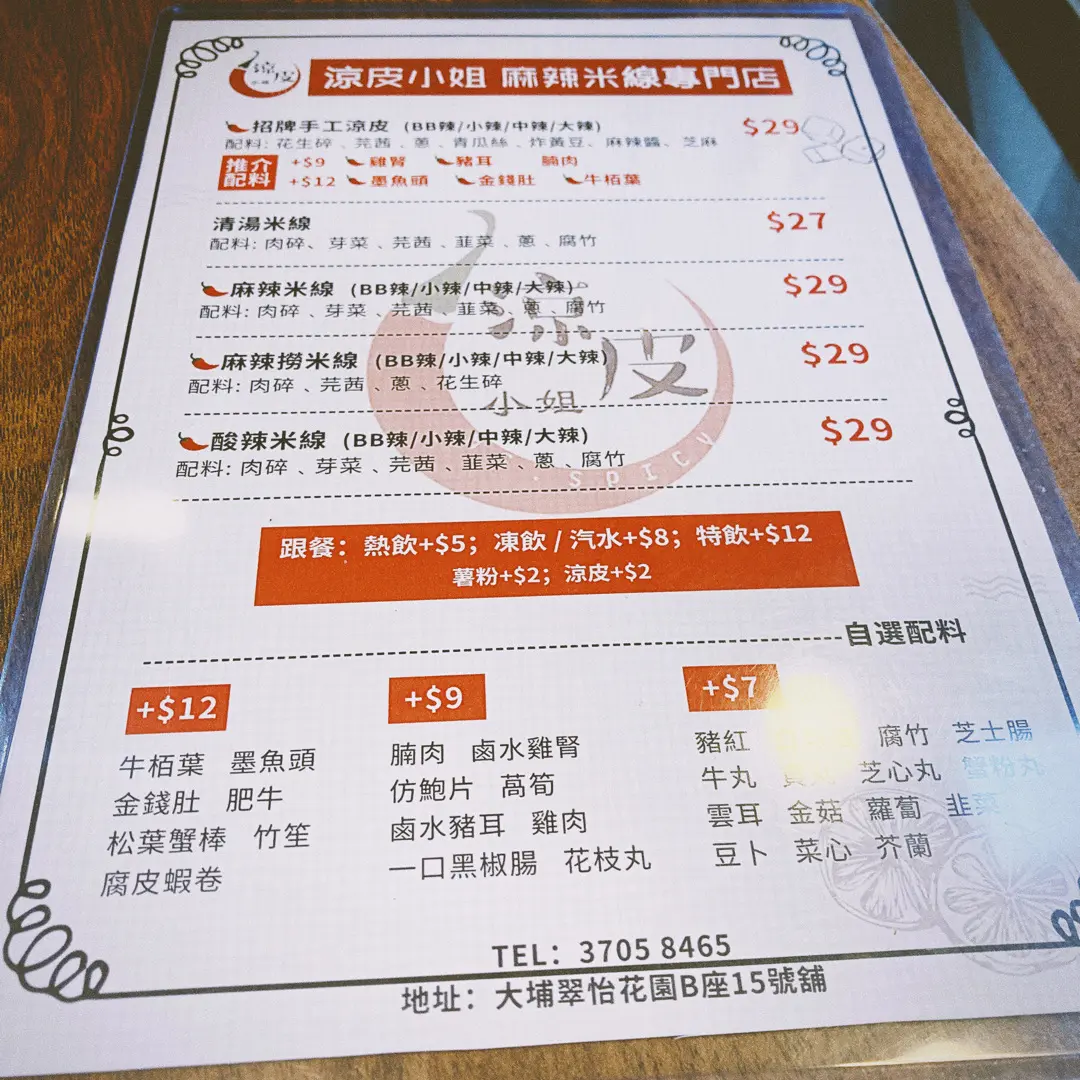 涼皮
小姐
涼皮小姐 麻辣米線專門店
招牌手工涼皮 (BB辣/小辣/中辣/大辣) $29
配料: 花生碎、芫茜、蔥、青瓜絲、炸黃豆、麻辣醬、芝麻
推介配料 +$9 雞腎 豬耳 腩肉
+$12 墨魚頭 金錢肚 牛栢葉
清湯米線 $27
配料: 肉碎、芽菜、芫茜、韮菜、蔥、腐竹
麻辣米線 (BB辣/小辣/中辣/大辣) $29
配料: 肉碎、芽菜、芫茜、韮菜、蔥、腐竹
麻辣撈米線 (BB辣/小辣/中辣/大辣) $29
配料: 肉碎、芫茜、蔥、花生碎
酸辣米線 (BB辣/小辣/中辣/大辣) $29
配料: 肉碎、芽菜、芫茜、韮菜、蔥、腐竹
涼皮
小姐
SPICY
跟餐：熱飲+$5；凍飲 / 汽水+$8；特飲+$12
薯粉+$2；涼皮+$2
自選配料
+$12 +$9 +$7
牛栢葉 墨魚頭 腩肉 鹵水雞腎 豬紅 腐竹 芝士腸
金錢肚 肥牛 仿鮑片 萵筍 牛丸 芝心丸 蟹粉丸
松葉蟹棒 竹笙 鹵水豬耳 雞肉 雲耳 金菇 蘿蔔 韭菜
腐皮蝦卷 一口黑椒腸 花枝丸 豆卜 菜心 芥蘭
TEL：3705 8465
地址：大埔翠怡花園B座15號舖